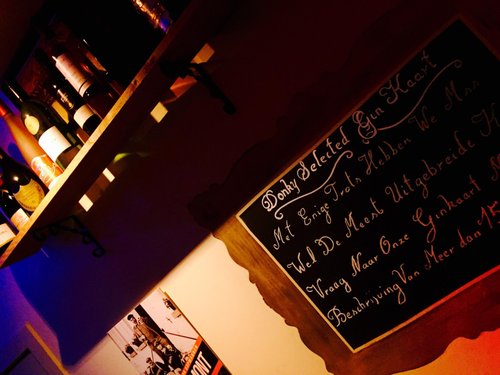 Donky Selected Gin Kaart
Met Enige Trots Hebben We Mss
Wel De Meest Uitgebreide K
Vraag Naar Onze Ginkaart
Beschrijving Van Meer dan 15
ONT